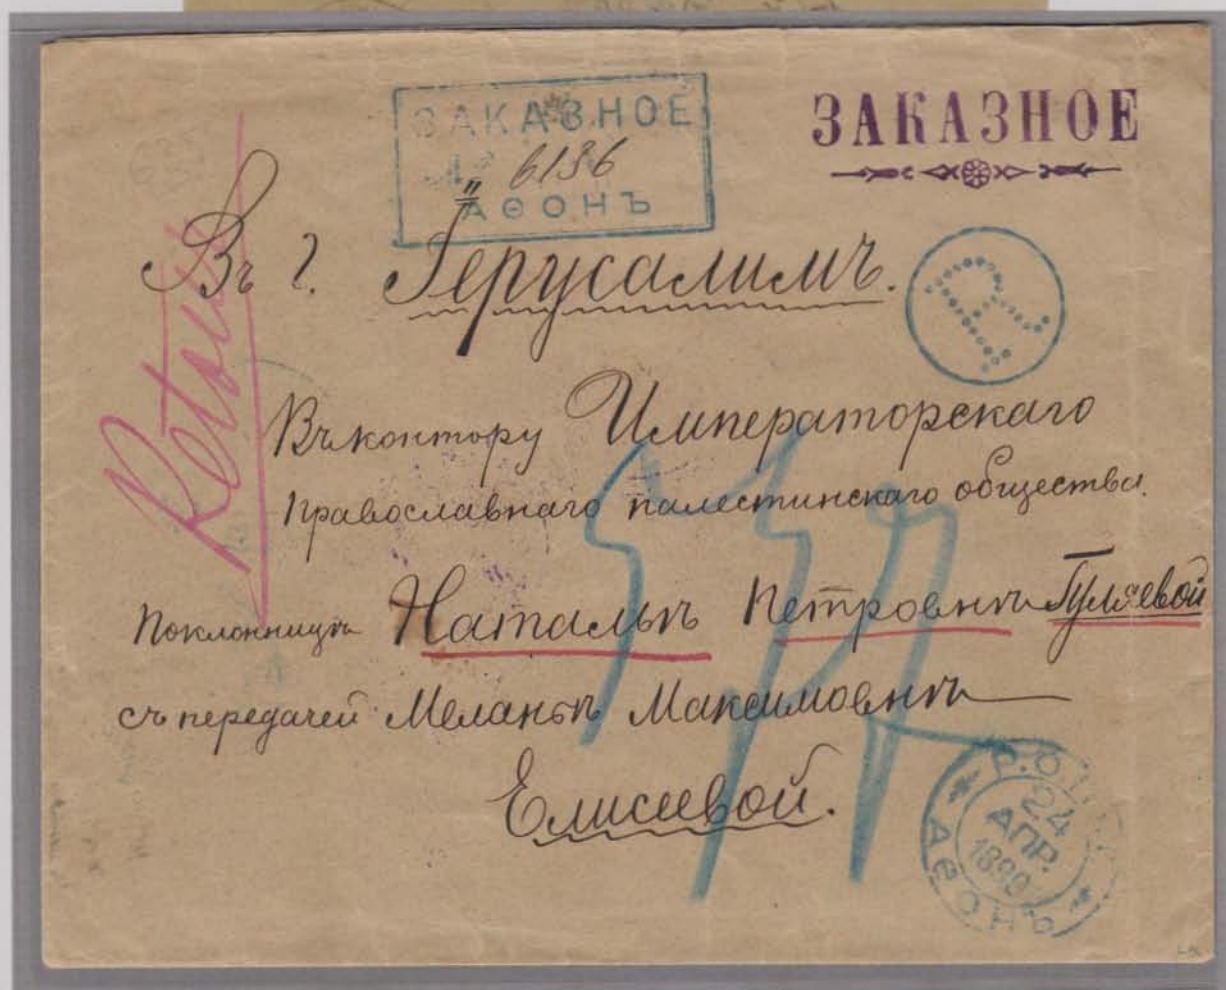 ЗАКАЗНОЕ
ЗАКАЗНОЕ
№ 6136
АѲОНЪ
R
Retour
Въ г. Іерусалимъ.
Въ контору Императорскаго
Православнаго палестинскаго общества.
Поклонницѣ Натальѣ Петровнѣ Гуляевой
съ передачей Меланьѣ Максимовнѣ
Елисеевой.
Р.О.П.
24
АПР.
1899
АѲОНЪ